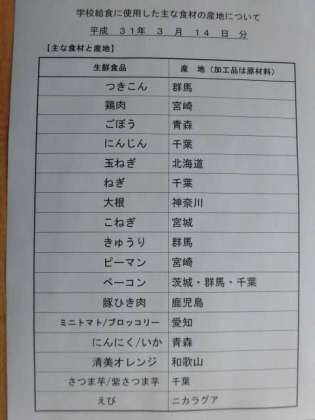 学校給食に使用した主な食材の産地について
平成 31年 3月 14日 分
【主な食材と産地】
生鮮食品 産 地（加工品は原材料）
つきこん 群馬
鶏肉 宮崎
ごぼう 青森
にんじん 千葉
玉ねぎ 北海道
ねぎ 千葉
大根 神奈川
こねぎ 宮城
きゅうり 群馬
ピーマン 宮崎
ベーコン 茨城・群馬・千葉
豚ひき肉 鹿児島
ミニトマト/ブロッコリー 愛知
にんにく/いか 青森
清美オレンジ 和歌山
さつま芋/紫さつま芋 千葉
えび ニカラグア